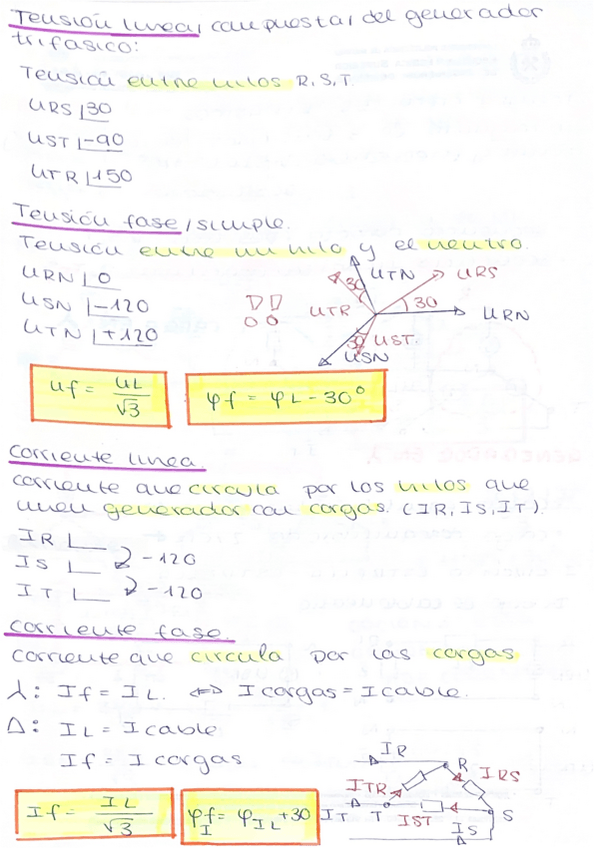 Tensión linea/compuesta/ del generador
trifásico:
Tensión entre hilos R, S, T.
URS |30
UST |-90
UTR |150
Tensión fase/simple.
Tensión entre un hilo y el neutro.
URN |0
USN |-120
UTN |+120
!!
UTN
URS
30
UTR
30
URN
30
UST
USN
Uf = UL/√3
φf = φL - 30°
Corriente linea.
corriente que circula por los hilos que
unen generador con cargas. (IR, IS, IT).
IR |
IS | -120
IT | -120
Corriente fase.
corriente que circula por las cargas
λ: If = IL. ⇔ I cargas = I cable.
Δ: IL = I cable
If = I cargas
If = IL/√3
φf I = φIL + 30
IR
R
ITR
IRS
IT
T
IST
S
IS